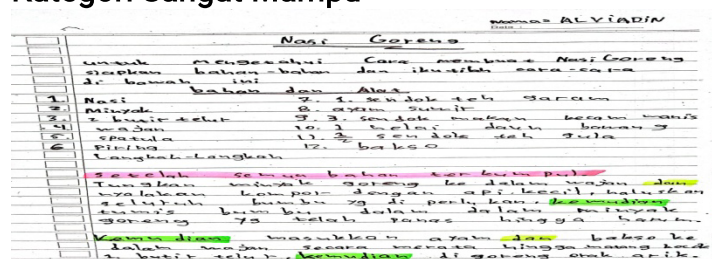 Kategori Sangat Mampu
Nama = ALVIADIN
Nasi Goreng
untuk mengetahui Cara membuat Nasi Goreng
siapkan bahan-bahan dan ikutilah cara-cara
di bawah ini
bahan dan Alat
1 Nasi 7. 1. sendok teh garam
2. Minyak 8. ayam suwir
3. 2 butir telur 9. 3. sendok makan kecam manis
4. wajan 10. 1 helai daun bawang
5. spatula 11. 1/2 sendok teh gula
6 Piring 12. bakso
Langkah-Langkah
Setelah semua bahan terkumpul.
Tungkan minyak goreng ke dalam wajan dan
nyalakan kompor dengan api kecil haluskan
seluruh bumbu yg di perlukan, kemudian
tumis bumbu dalam dalam minyak
goreng yg telah panas hingga harum.
Kemudian masukkan ayam dan bakso ke
dalam wajan secara merata hingga matang
2 butir telur, kemudian di goreng orak arik.